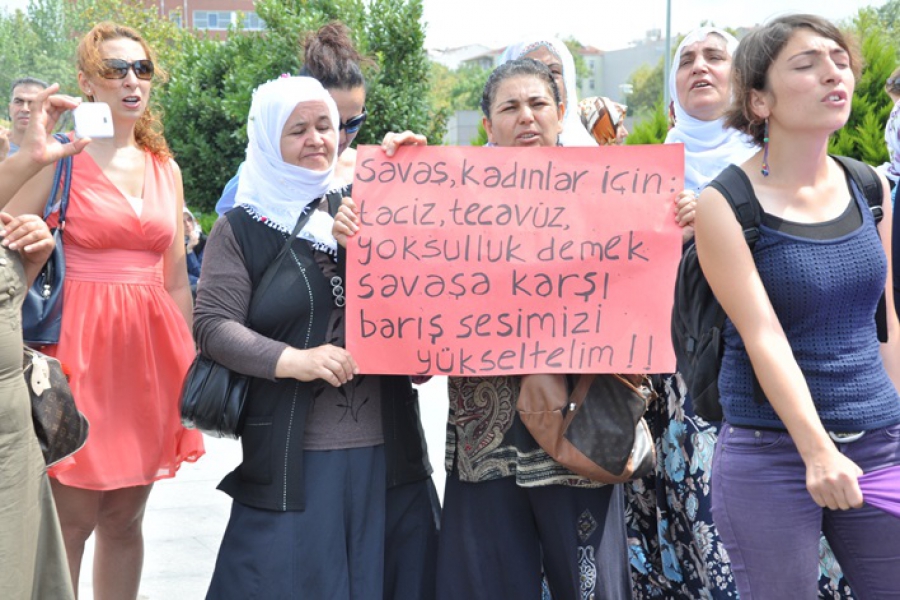 savaş, kadınlar için:
taciz, tecavüz,
yoksulluk demek
savaşa karşı
bariş sesimizi
yükseltelim!!